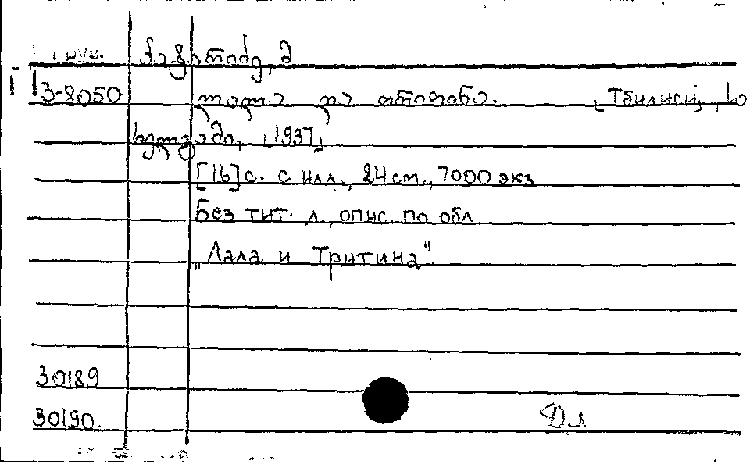 3-8050 ლალა და ტრიტინა. [Тбилиси],
[1937]
[16] с. с илл., 24 см., 7000 экз
Без тит. л., опис. по обл
„Лала и Тритина"
30189
30190. Дл